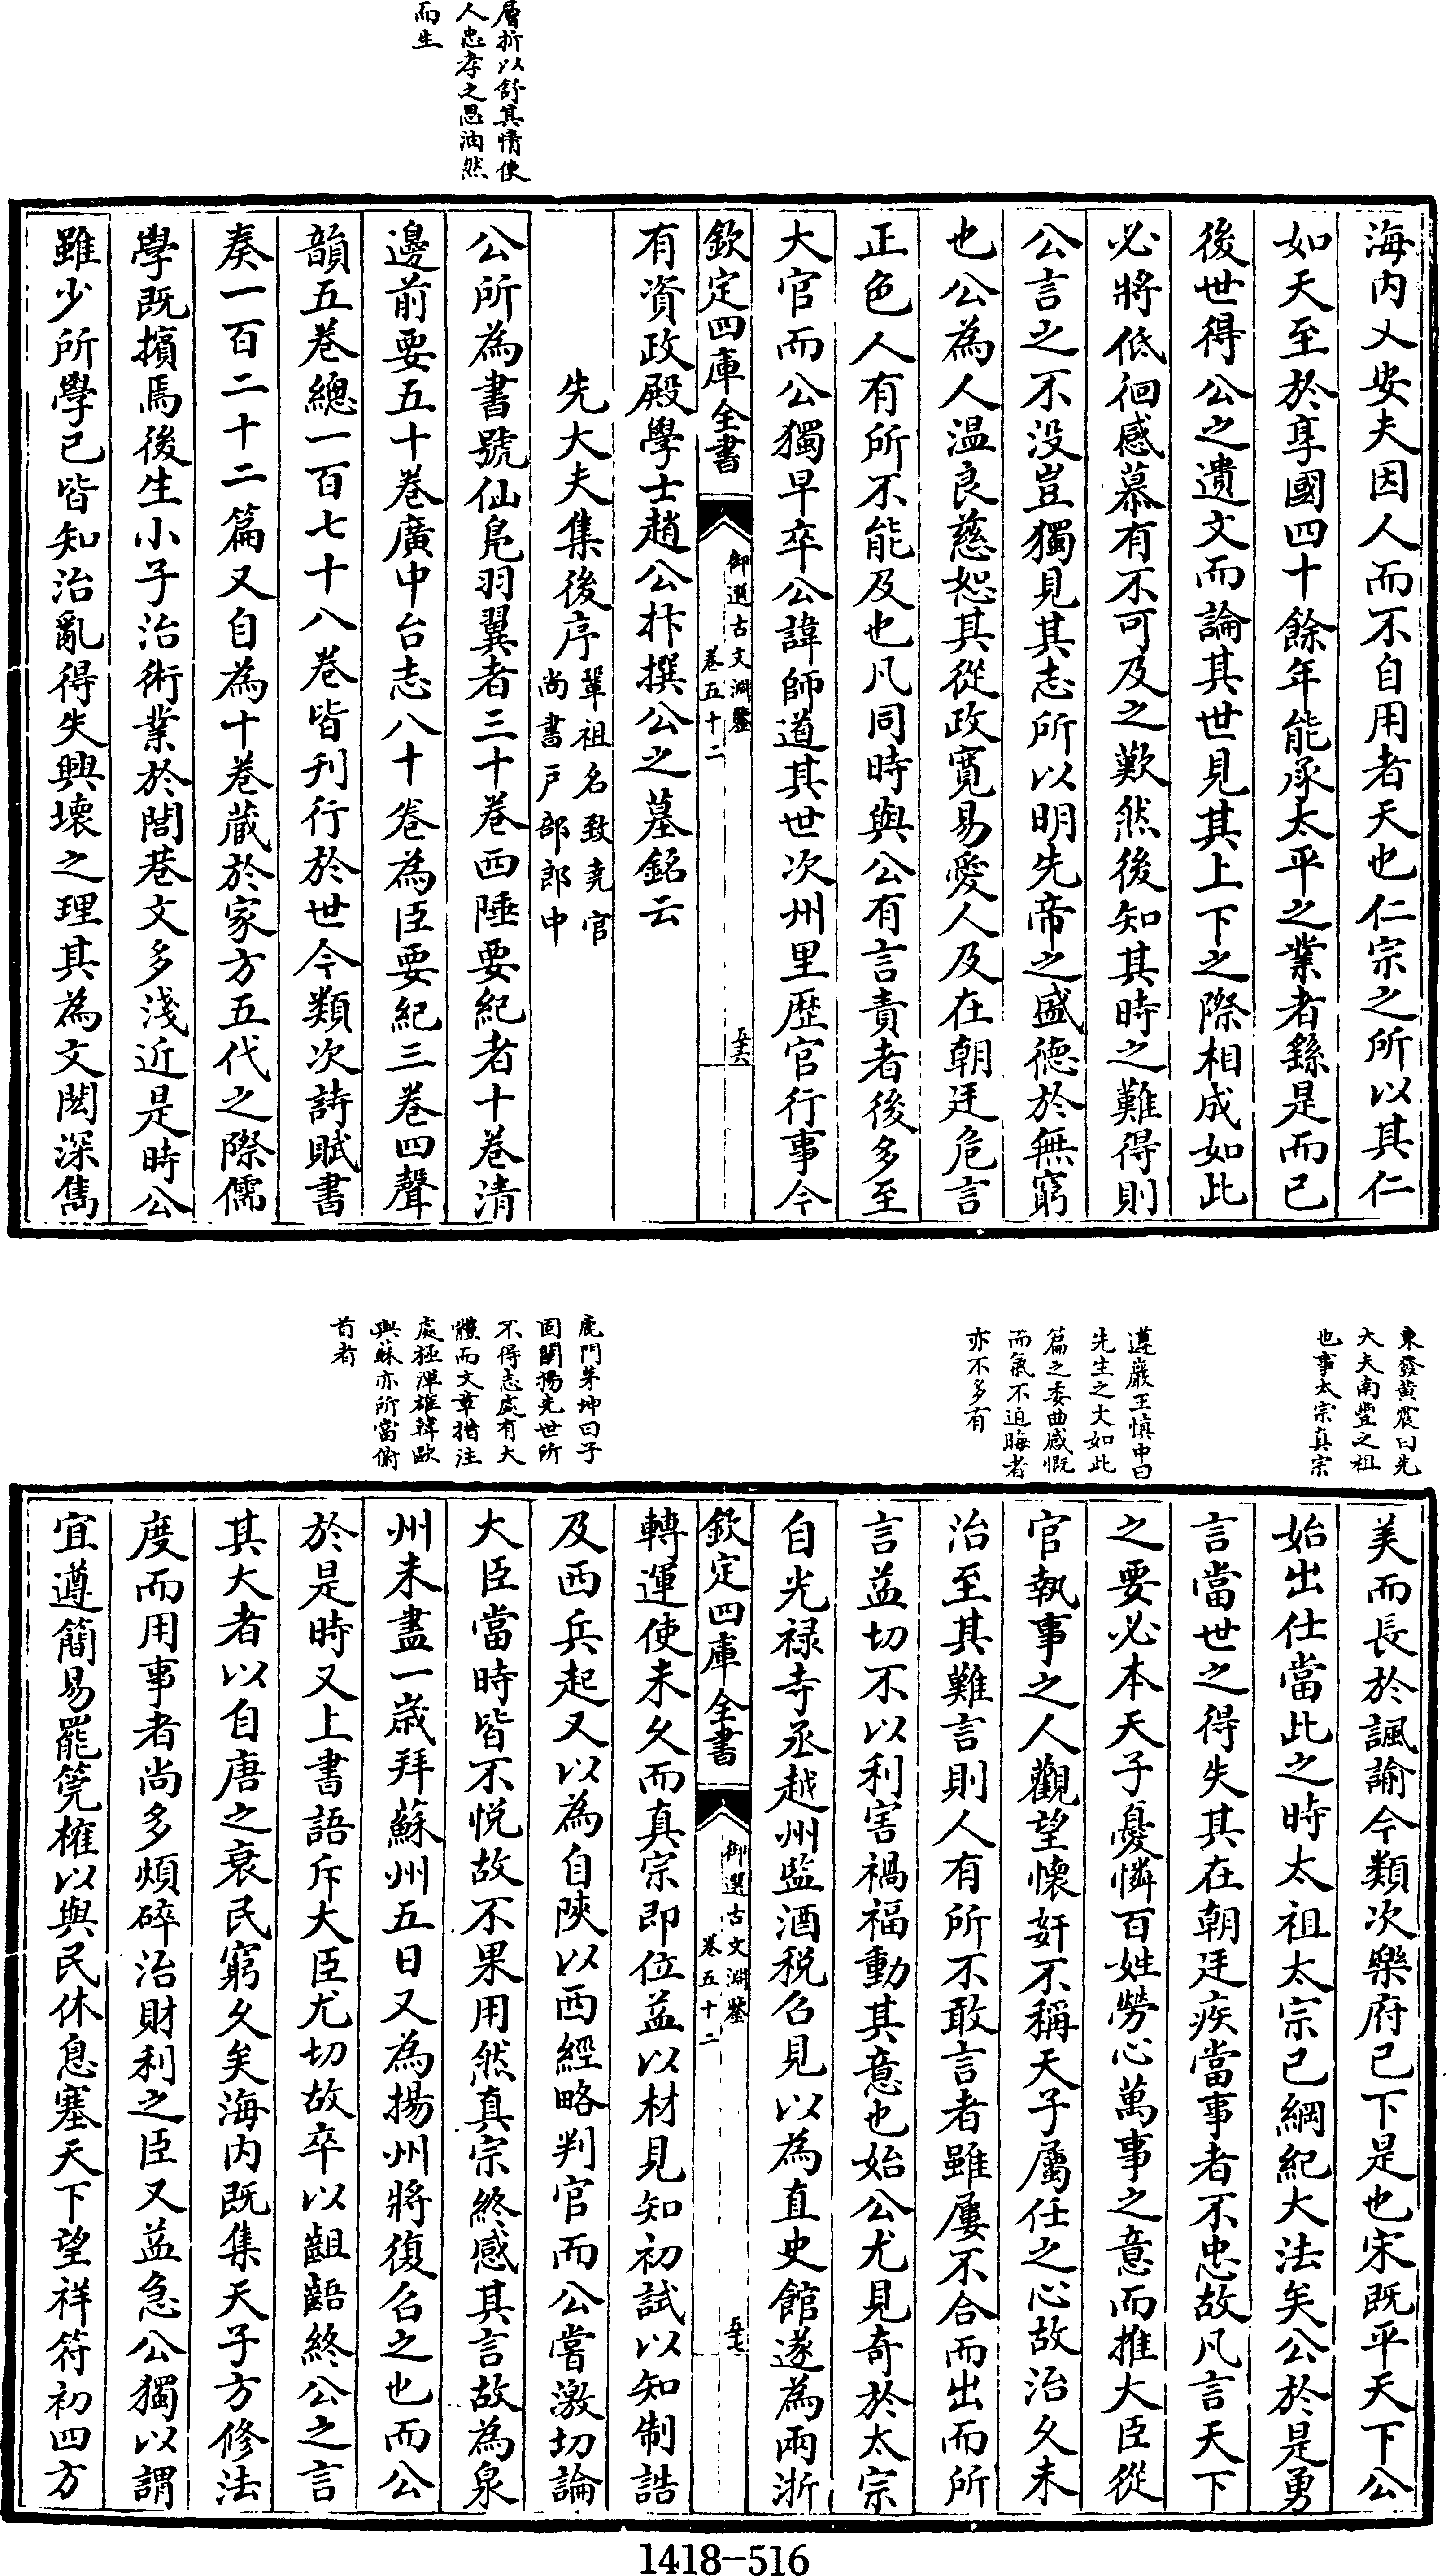 層折以舒其情使
人忠孝之思油然
而生
海内乂安夫因人而不自用者天也仁宗之所以其仁
如天至於享國四十餘年能承太平之業者繇是而已
後世得公之遺文而論其世見其上下之際相成如此
必將低徊感慕有不可及之歎然後知其時之難得則
公言之不没豈獨見其志所以明先帝之盛德於無窮
也公為人温良慈恕其從政寛易愛人及在朝廷危言
正色人有所不能及也凡同時與公有言責者後多至
大官而公獨早卒公諱師道其世次州里歴官行事今
欽定四庫全書
御選古文淵鑒
卷五十二
五十六
有資政殿學士趙公抃撰公之墓銘云
先大夫集後序
鞏祖名致堯官
尚書户部郎中
公所為書號仙鳬羽翼者三十巻西陲要紀者十巻清
邊前要五十巻廣中台志八十巻為臣要紀三巻四聲
韻五巻總一百七十八巻皆刋行於世今類次詩賦書
奏一百二十二篇又自為十巻藏於家方五代之際儒
學既擯焉後生小子治術業於閭巷文多淺近是時公
雖少所學已皆知治亂得失興壞之理其為文閎深雋
東發黄震曰先
大夫南豐之祖
也事太宗真宗
遵巖王慎中曰
先生之文如此
篇之委曲感慨
而氣不迫晦者
亦不多有
鹿門茅坤曰子
固闡揚先世所
不得志處有大
體而文章措注
處極渾雄韓歐
與蘇亦所當俯
首者
美而長於諷諭今類次樂府已下是也宋既平天下公
始出仕當此之時太祖太宗已綱紀大法矣公於是勇
言當世之得失其在朝廷疾當事者不忠故凡言天下
之要必本天子憂憐百姓勞心萬事之意而推大臣從
官執事之人觀望懷奸不稱天子屬任之心故治久未
治至其難言則人有所不敢言者雖屢不合而出而所
言益切不以利害禍福動其意也始公尤見奇於太宗
自光禄寺丞越州監酒税召見以為直史館遂為兩浙
欽定四庫全書
御選古文淵鑒
卷五十二
五十七
轉運使未久而真宗即位益以材見知初試以知制誥
及西兵起又以為自陜以西經略判官而公嘗激切論
大臣當時皆不悦故不果用然真宗終感其言故為泉
州未盡一歳拜蘇州五日又為揚州將復召之也而公
於是時又上書語斥大臣尤切故卒以齟齬終公之言
其大者以自唐之衰民窮久矣海内既集天子方修法
度而用事者尚多煩碎治財利之臣又益急公獨以謂
宜遵簡易罷筦榷以與民休息塞天下望祥符初四方
1418-516